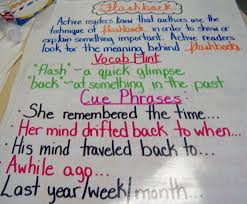 Flashback
Active readers know that authors use the
technique of flashback in order to show or
explain something important. Active readers
look for the meaning behind flashbacks
Vocab Hint
"flash" - a quick glimpse
"back" - at something in the past
Cue Phrases
She remembered the time...
Her mind drifted back to when...
His mind traveled back to...
Awhile ago...
Last year/week/month...